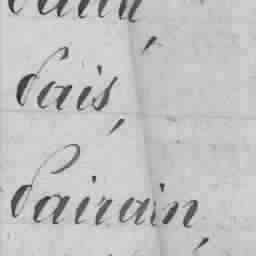 dais,
dairain,